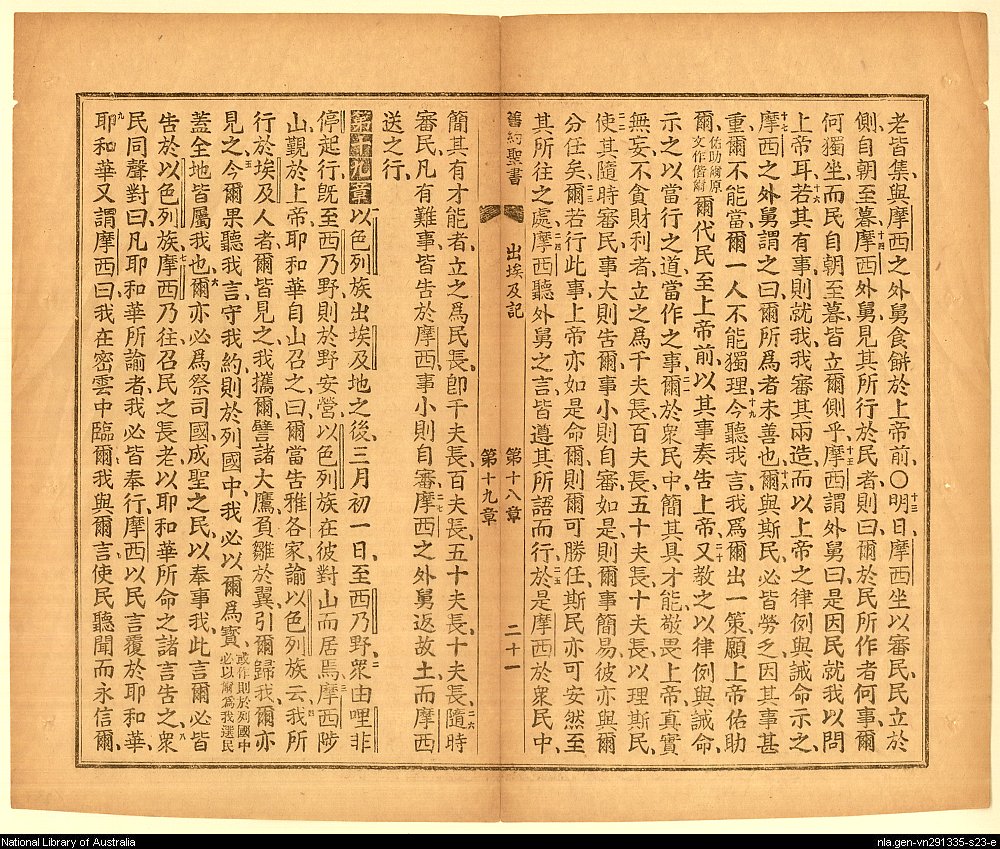 老皆集、與摩西之外舅食餅於上帝前、○十三明日摩西坐以審民、民立於
側、自朝至暮、十四摩西外舅見其所行於民者、則曰、爾於民所作者何事、爾
何獨坐、而民自朝至暮、皆立爾側乎、十五摩西謂外舅曰、是因民就我以問
上帝耳、十六若其有事則就我、我審其兩造、而以上帝之律例與誡命示之、
十七摩西之外舅謂之曰、爾所爲者未善也、十八爾與斯民必皆勞乏、因其事甚
重、爾不能當、爾一人不能獨理、十九今聽我言、我爲爾出一策、願上帝佑助
爾、佑助爾原文作偕爾爾代民至上帝前、以其事奏告上帝、二十又教之以律例與誡命、
示之以當行之道、當作之事、二一爾於衆民中、簡其具才能、敬畏上帝、真實
無妄、不貪財利者、立之爲千夫長、百夫長、五十夫長、十夫長、以理斯民、
二二使其隨時審民、事大則告爾、事小則自審、如是則爾事簡易、彼亦與爾
分任矣、二三爾若行此事、上帝亦如是命爾、則爾可勝任、斯民亦可安然至
其所往之處、二四摩西聽外舅之言、皆遵其所語而行、二五於是摩西於衆民中、
舊約聖書 出埃及記 第十八章 第十九章 二十一
簡其有才能者、立之爲民長、卽千夫長、百夫長、五十夫長、十夫長、二六隨時
審民、凡有難事、皆告於摩西、事小則自審、二七摩西之外舅返故土、而摩西
送之行、
第十九章 以色列族出埃及地之後、三月初一日、至西乃野、二衆由哩非
停起行、旣至西乃野、則於野安營、以色列族在彼對山而居焉、三摩西陟
山覲於上帝、耶和華自山召之曰、爾當告雅各家、諭以色列族云、四我所
行於埃及人者、爾皆見之、我攜爾、譬諸大鷹負雛於翼、引爾歸我、爾亦
見之、五今爾果聽我言、守我約、則於列國中、我必以爾爲寶、或作則於列國中必以爾爲我選民
蓋全地皆屬我也、六爾亦必爲祭司國、成聖之民、以奉事我、此言爾必皆
告於以色列族、七摩西乃往召民之長老、以耶和華所命之諸言告之、八衆
民同聲對曰、凡耶和華所諭者、我必皆奉行、摩西以民言覆於耶和華、
九耶和華又謂摩西曰、我在密雲中臨爾、我與爾言、使民聽聞而永信爾、
National Library of Australia
nla.gen-vn291335-s23-e